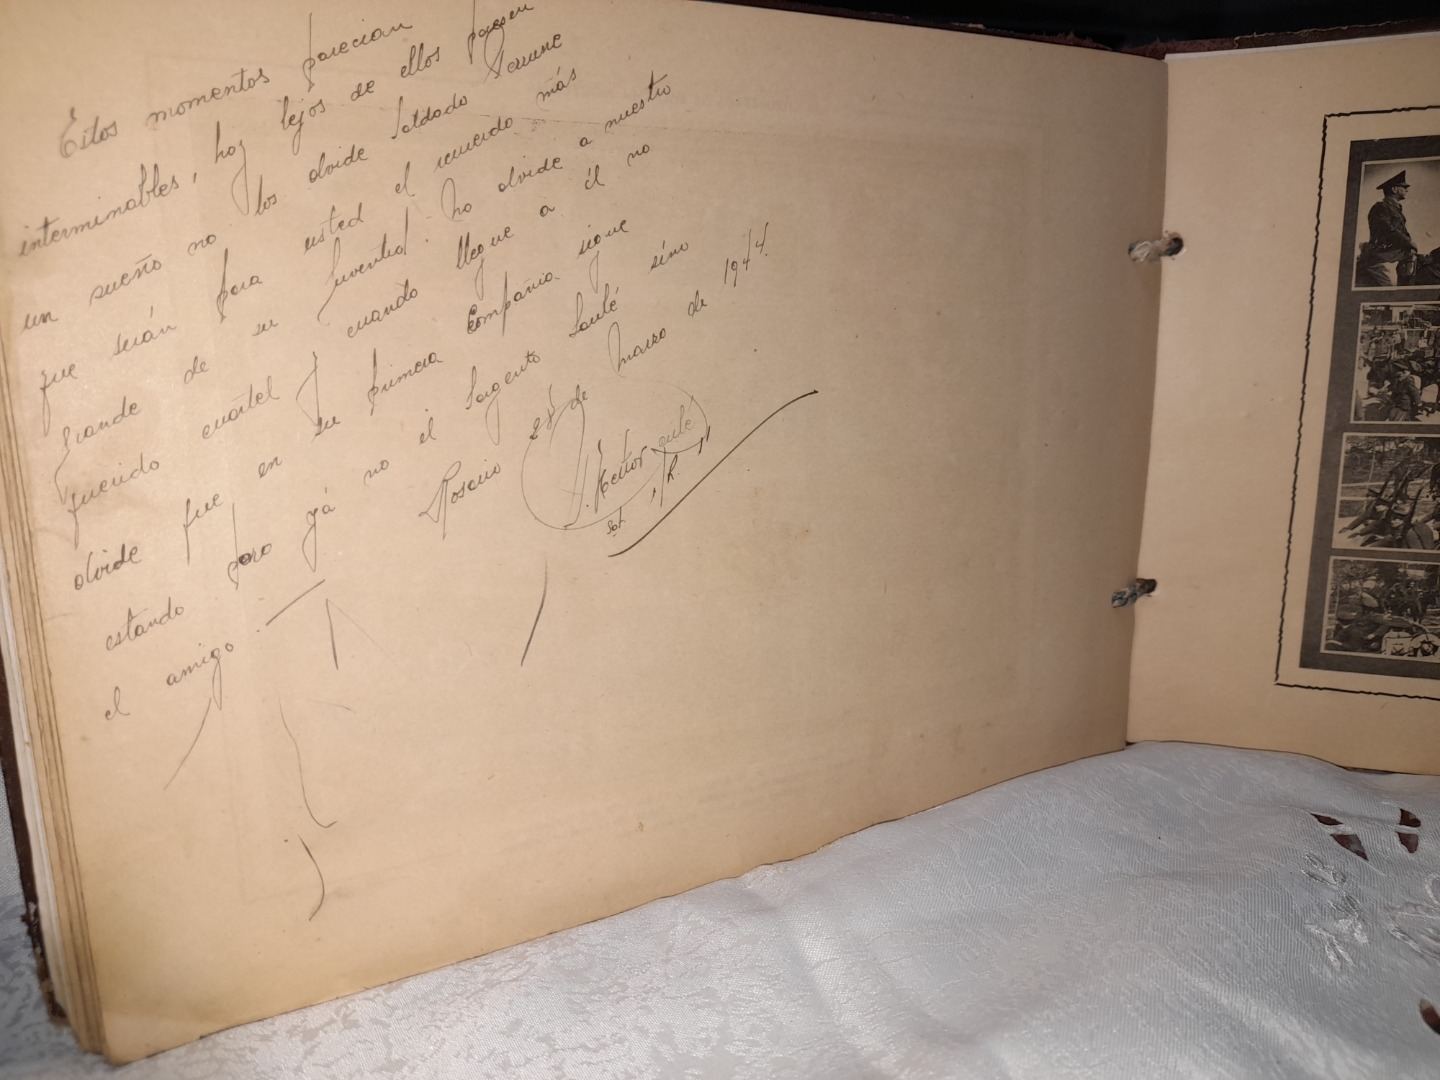 Estos momentos parecian
interminables, hoy lejos de ellos parecen
un sueño no los olvide soldado
que serán para usted el recuerdo más
grande de su juventud. No olvide a nuestro
querido cuartel y cuando llegue a él no
olvide que en su primera Compañia sigue
estando pero yá no el Sargento Saulé sino
el amigo.
Rosario 28 de Marzo de 1944.
Hector Saulé
Sgt.